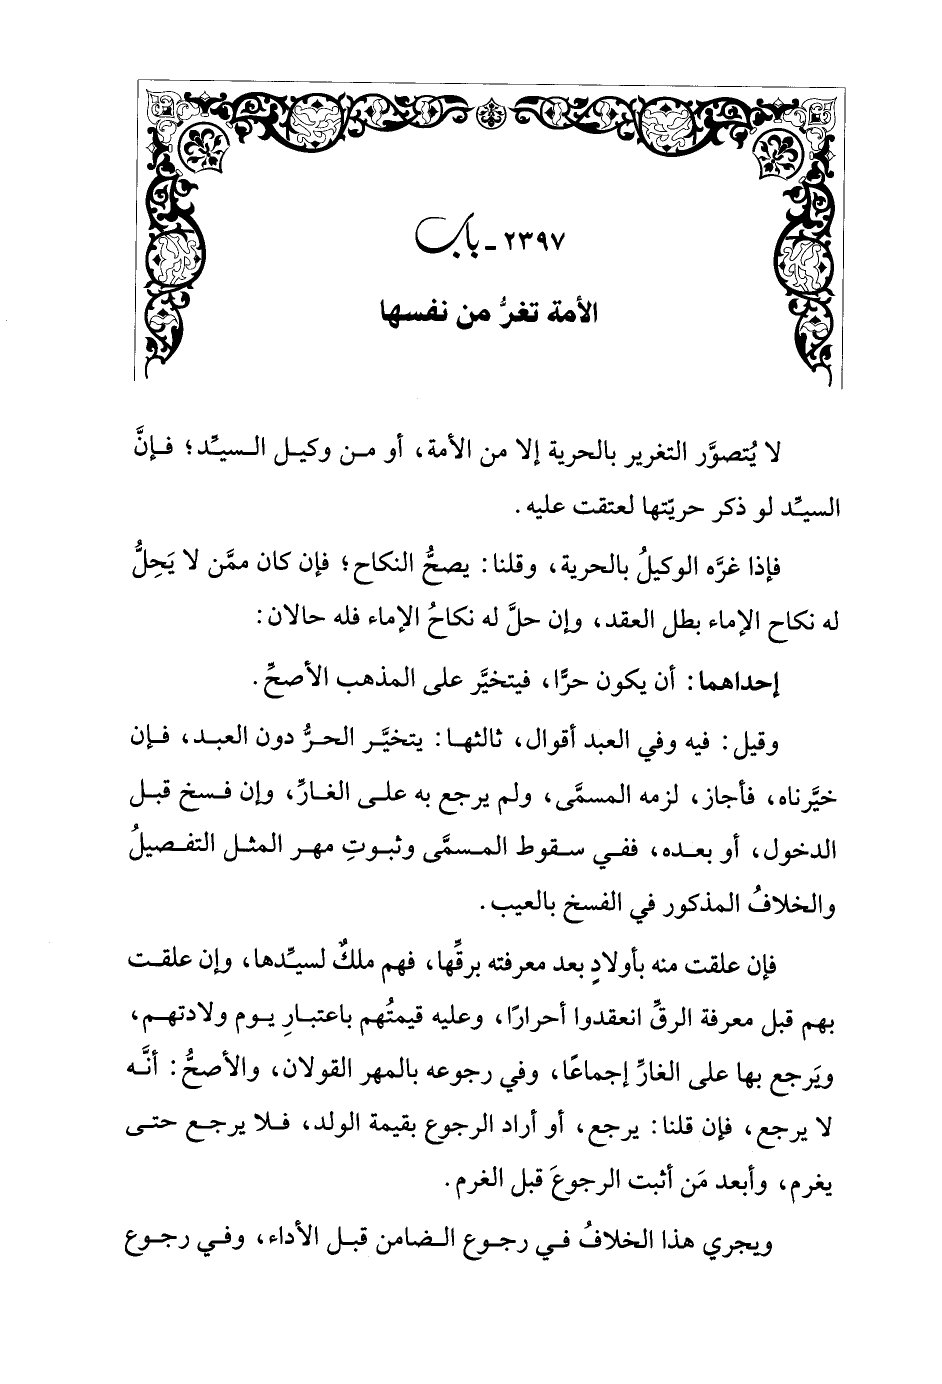 ٢٣٩٧ - باب
الأمة تغرُّ من نفسها
لا يُتصوَّر التغرير بالحرية إلا من الأمة، أو من وكيل السيِّد؛ فإنَّ
السيِّد لو ذكر حريّتها لعتقت عليه.
فإذا غرَّه الوكيلُ بالحرية، وقلنا: يصحُّ النكاح؛ فإن كان ممَّن لا يَحِلُّ
له نكاح الإماء بطل العقد، وإن حلَّ له نكاحُ الإماء فله حالان:
إحداهما: أن يكون حرًّا، فيتخيَّر على المذهب الأصحِّ.
وقيل: فيه وفي العبد أقوال، ثالثها: يتخيَّر الحرُّ دون العبد، فإن
خيَّرناه، فأجاز، لزمه المسمَّى، ولم يرجع به على الغارِّ، وإن فسخ قبل
الدخول، أو بعده، ففي سقوط المسمَّى وثبوتِ مهر المثل التفصيلُ
والخلافُ المذكور في الفسخ بالعيب.
فإن علقت منه بأولادٍ بعد معرفته برقِّها، فهم ملكٌ لسيِّدها، وإن علقت
بهم قبل معرفة الرقِّ انعقدوا أحرارًا، وعليه قيمتُهم باعتبارِ يوم ولادتهم،
ويَرجع بها على الغارِّ إجماعًا، وفي رجوعه بالمهر القولان، والأصحُّ: أنَّه
لا يرجع، فإن قلنا: يرجع، أو أراد الرجوع بقيمة الولد، فلا يرجع حتى
يغرم، وأبعد مَن أثبت الرجوعَ قبل الغرم.
ويجري هذا الخلافُ في رجوع الضامن قبل الأداء، وفي رجوع